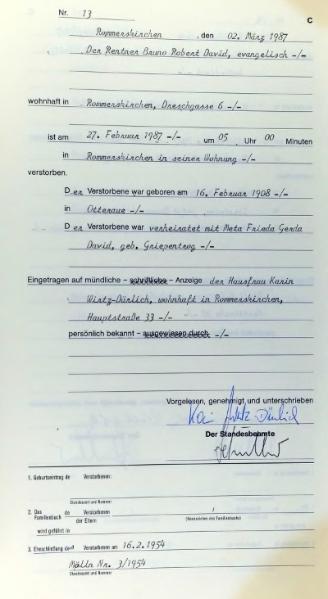 Nr. 13
C
Rommerskirchen, den 02. März 1987
Der Rentner Bruno Robert David, evangelisch -/-
wohnhaft in Rommerskirchen, Dreschgasse 6 -/-
ist am 27. Februar 1987 -/- um 05 Uhr 00 Minuten
in Rommerskirchen in seiner Wohnung -/-
verstorben.
Der Verstorbene war geboren am 16. Februar 1908 -/-
in Otterau -/-
Der Verstorbene war verheiratet mit Meta Frieda Gerda
David, geb. Griepentrog -/-
Eingetragen auf mündliche - schriftliche - Anzeige der Hausfrau Karin
Wirtz-Dürlich, wohnhaft in Rommerskirchen,
Hauptstraße 33 -/-
persönlich bekannt - ausgewiesen durch -/-
Vorgelesen, genehmigt und unterschrieben
Karin Wirtz-Dürlich
Der Standesbeamte
1. Geburtseintrag de Verstorbenen:
Standesamt und Nummer
2. Das Familienbuch de Verstorbenen
der Eltern
wird geführt in
3. Eheschließung de Verstorbenen am 16.2.1954
Mölln Nr. 3/1954
Standesamt und Nummer